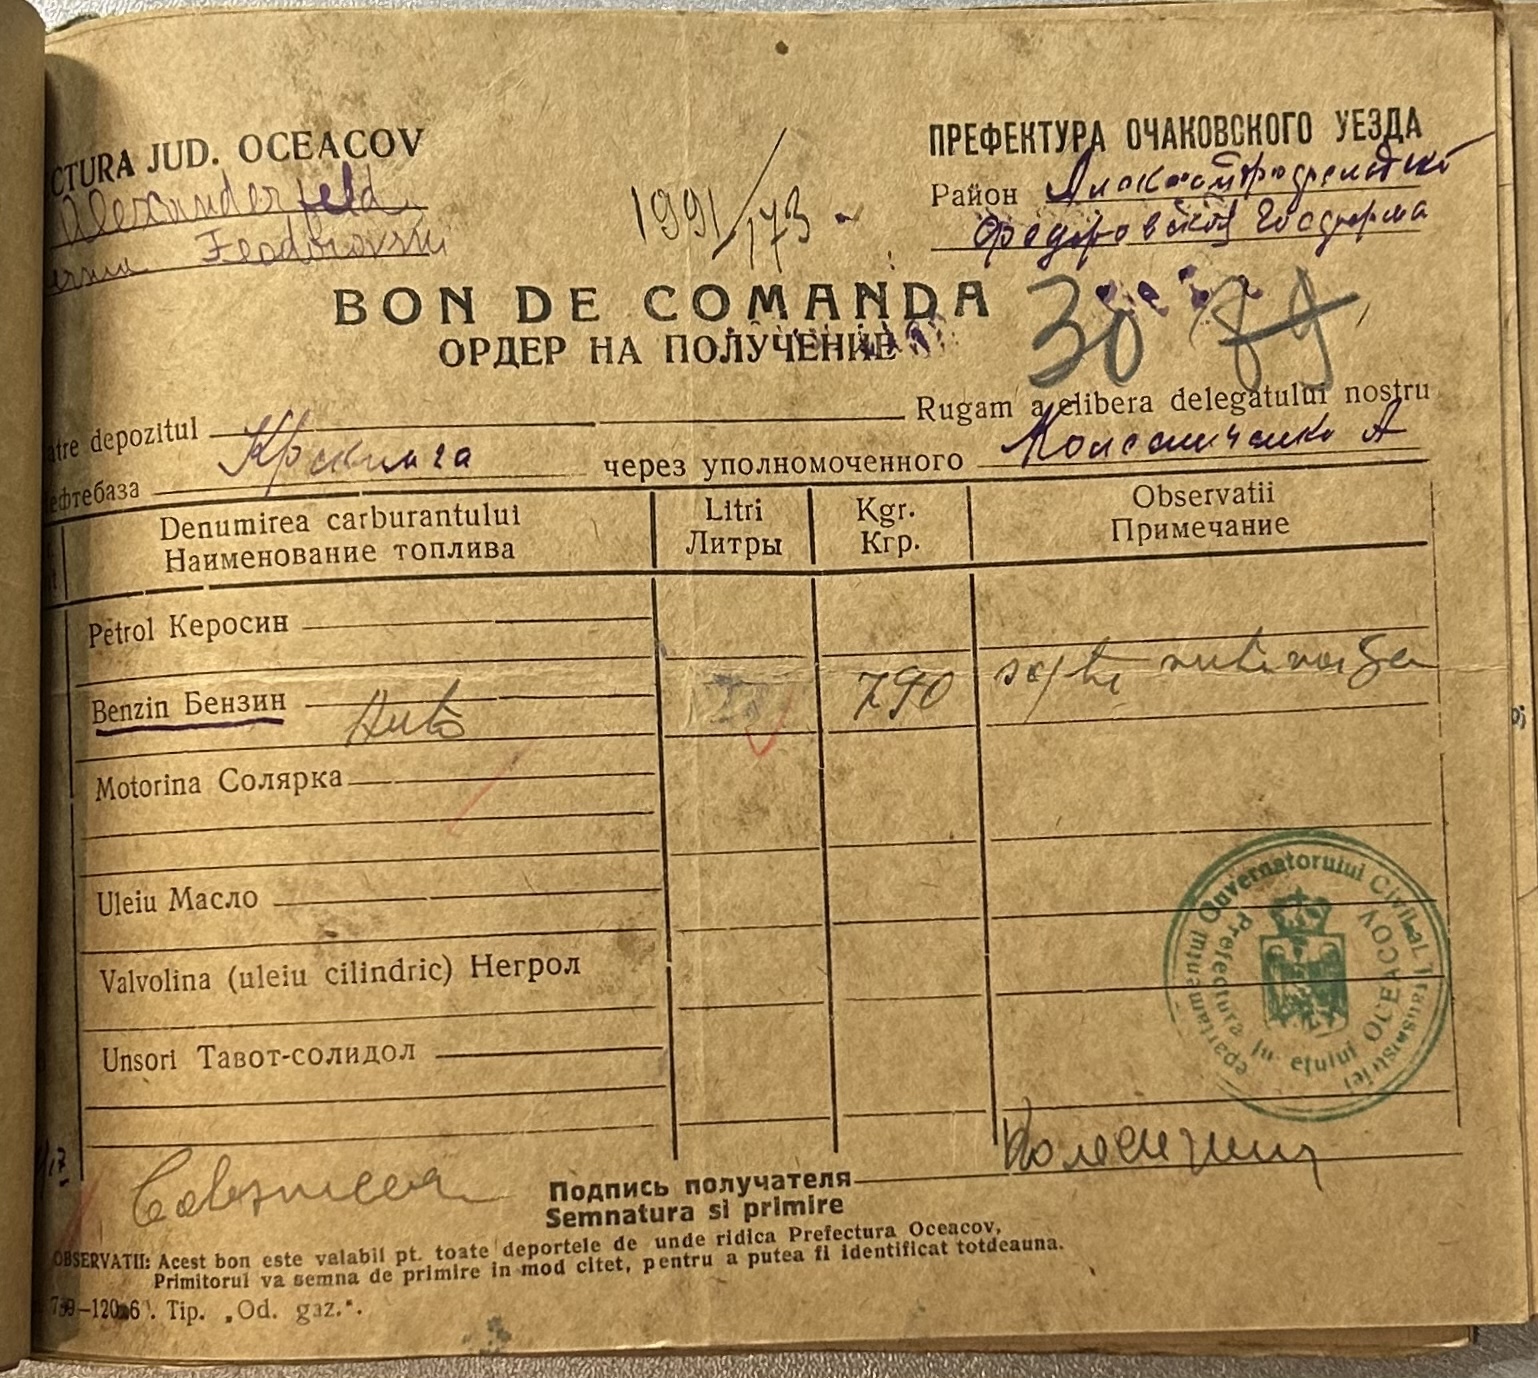 CTURA JUD. OCEACOV
Alexanderfeld
Feodorovski
1991/173
ПРЕФЕКТУРА ОЧАКОВСКОГО УЕЗДА
Район
Федоровская Госферма
BON DE COMANDA
ОРДЕР НА ПОЛУЧЕНИЕ
30
tre depozitul Rugam a elibera delegatului nostru
ефтебаза через уполномоченного А
Denumirea carburantului Litri Kgr. Observatii
Наименование топлива Литры Кгр. Примечание
Petrol Керосин
Benzin Бензин Auto 790 șapte sute
Motorina Солярка
Uleiu Масло
Valvolina (uleiu cilindric) Негрол
Unsori Тавот-солидол
epartamentul Guvernatorului Civil al Transnistriei
Prefectura Județului OCEACOV
Подпись получателя
Semnatura si primire
OBSERVATII: Acest bon este valabil pt. toate deportele de unde ridica Prefectura Oceacov,
Primitorul va semna de primire in mod citet, pentru a putea fi identificat totdeauna.
Tip. „Od. gaz.".